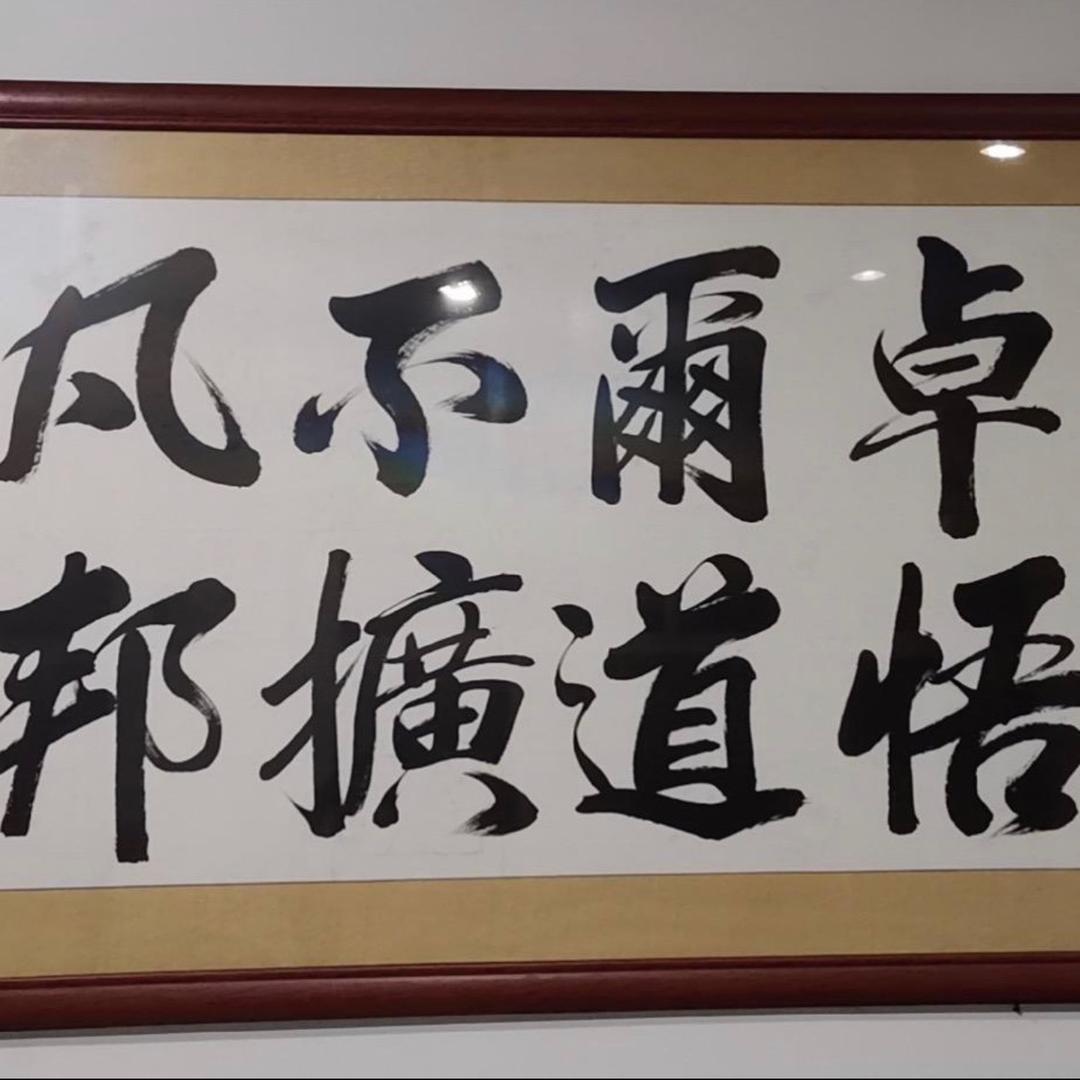 卓爾不凡
悟道擴邦